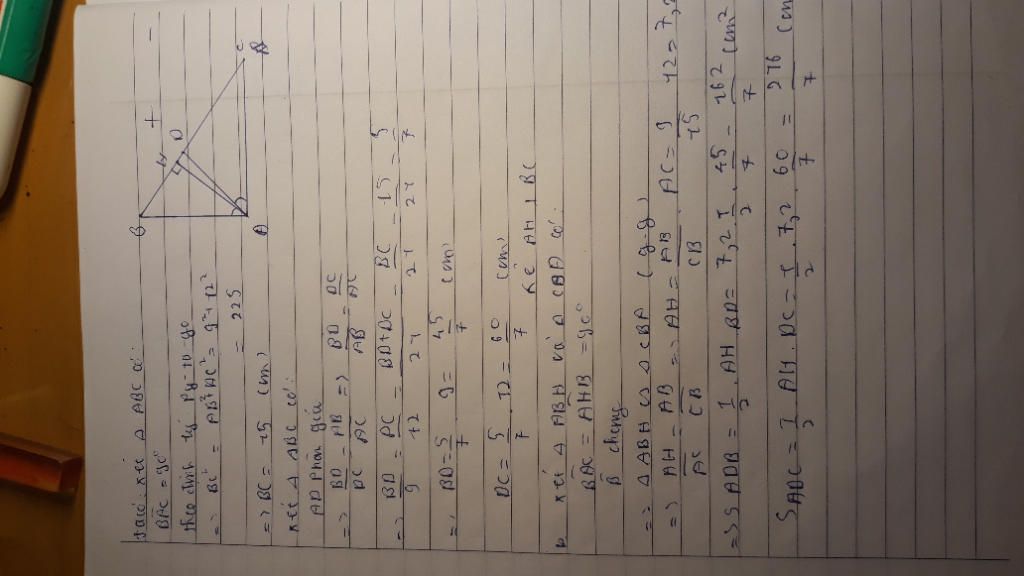 xét Δ ABC có:
BAC = 90°
theo định lý Py-ta-go
=> BC² = AB² + AC² = 9² + 12²
= 225
=> BC = 15 (cm)
xét Δ ABC có:
AD phân giác
=> BD/DC = AB/AC => BD/AB = DC/AC
=> BD/9 = DC/12 = BD+DC/21 = BC/21 = 15/21 = 5/7
=> BD = 5/7 . 9 = 45/7 (cm)
DC = 5/7 . 12 = 60/7 (cm)
kẻ AH ⊥ BC
xét Δ ABH và Δ CBA có:
BAC = AHB = 90°
B chung
=> Δ ABH ∽ Δ CBA (g.g)
=> AH/AC = AB/CB => AH = AB . AC/CB = 9 . 12/15 = 7,2
=> S ADB = 1/2 . AH . BD = 7,2 . 1/2 . 45/7 = 162/7 cm²
S ADC = 1/2 AH . DC = 1/2 . 7,2 . 60/7 = 216/7 cm
B
H
D
C
A
+
−